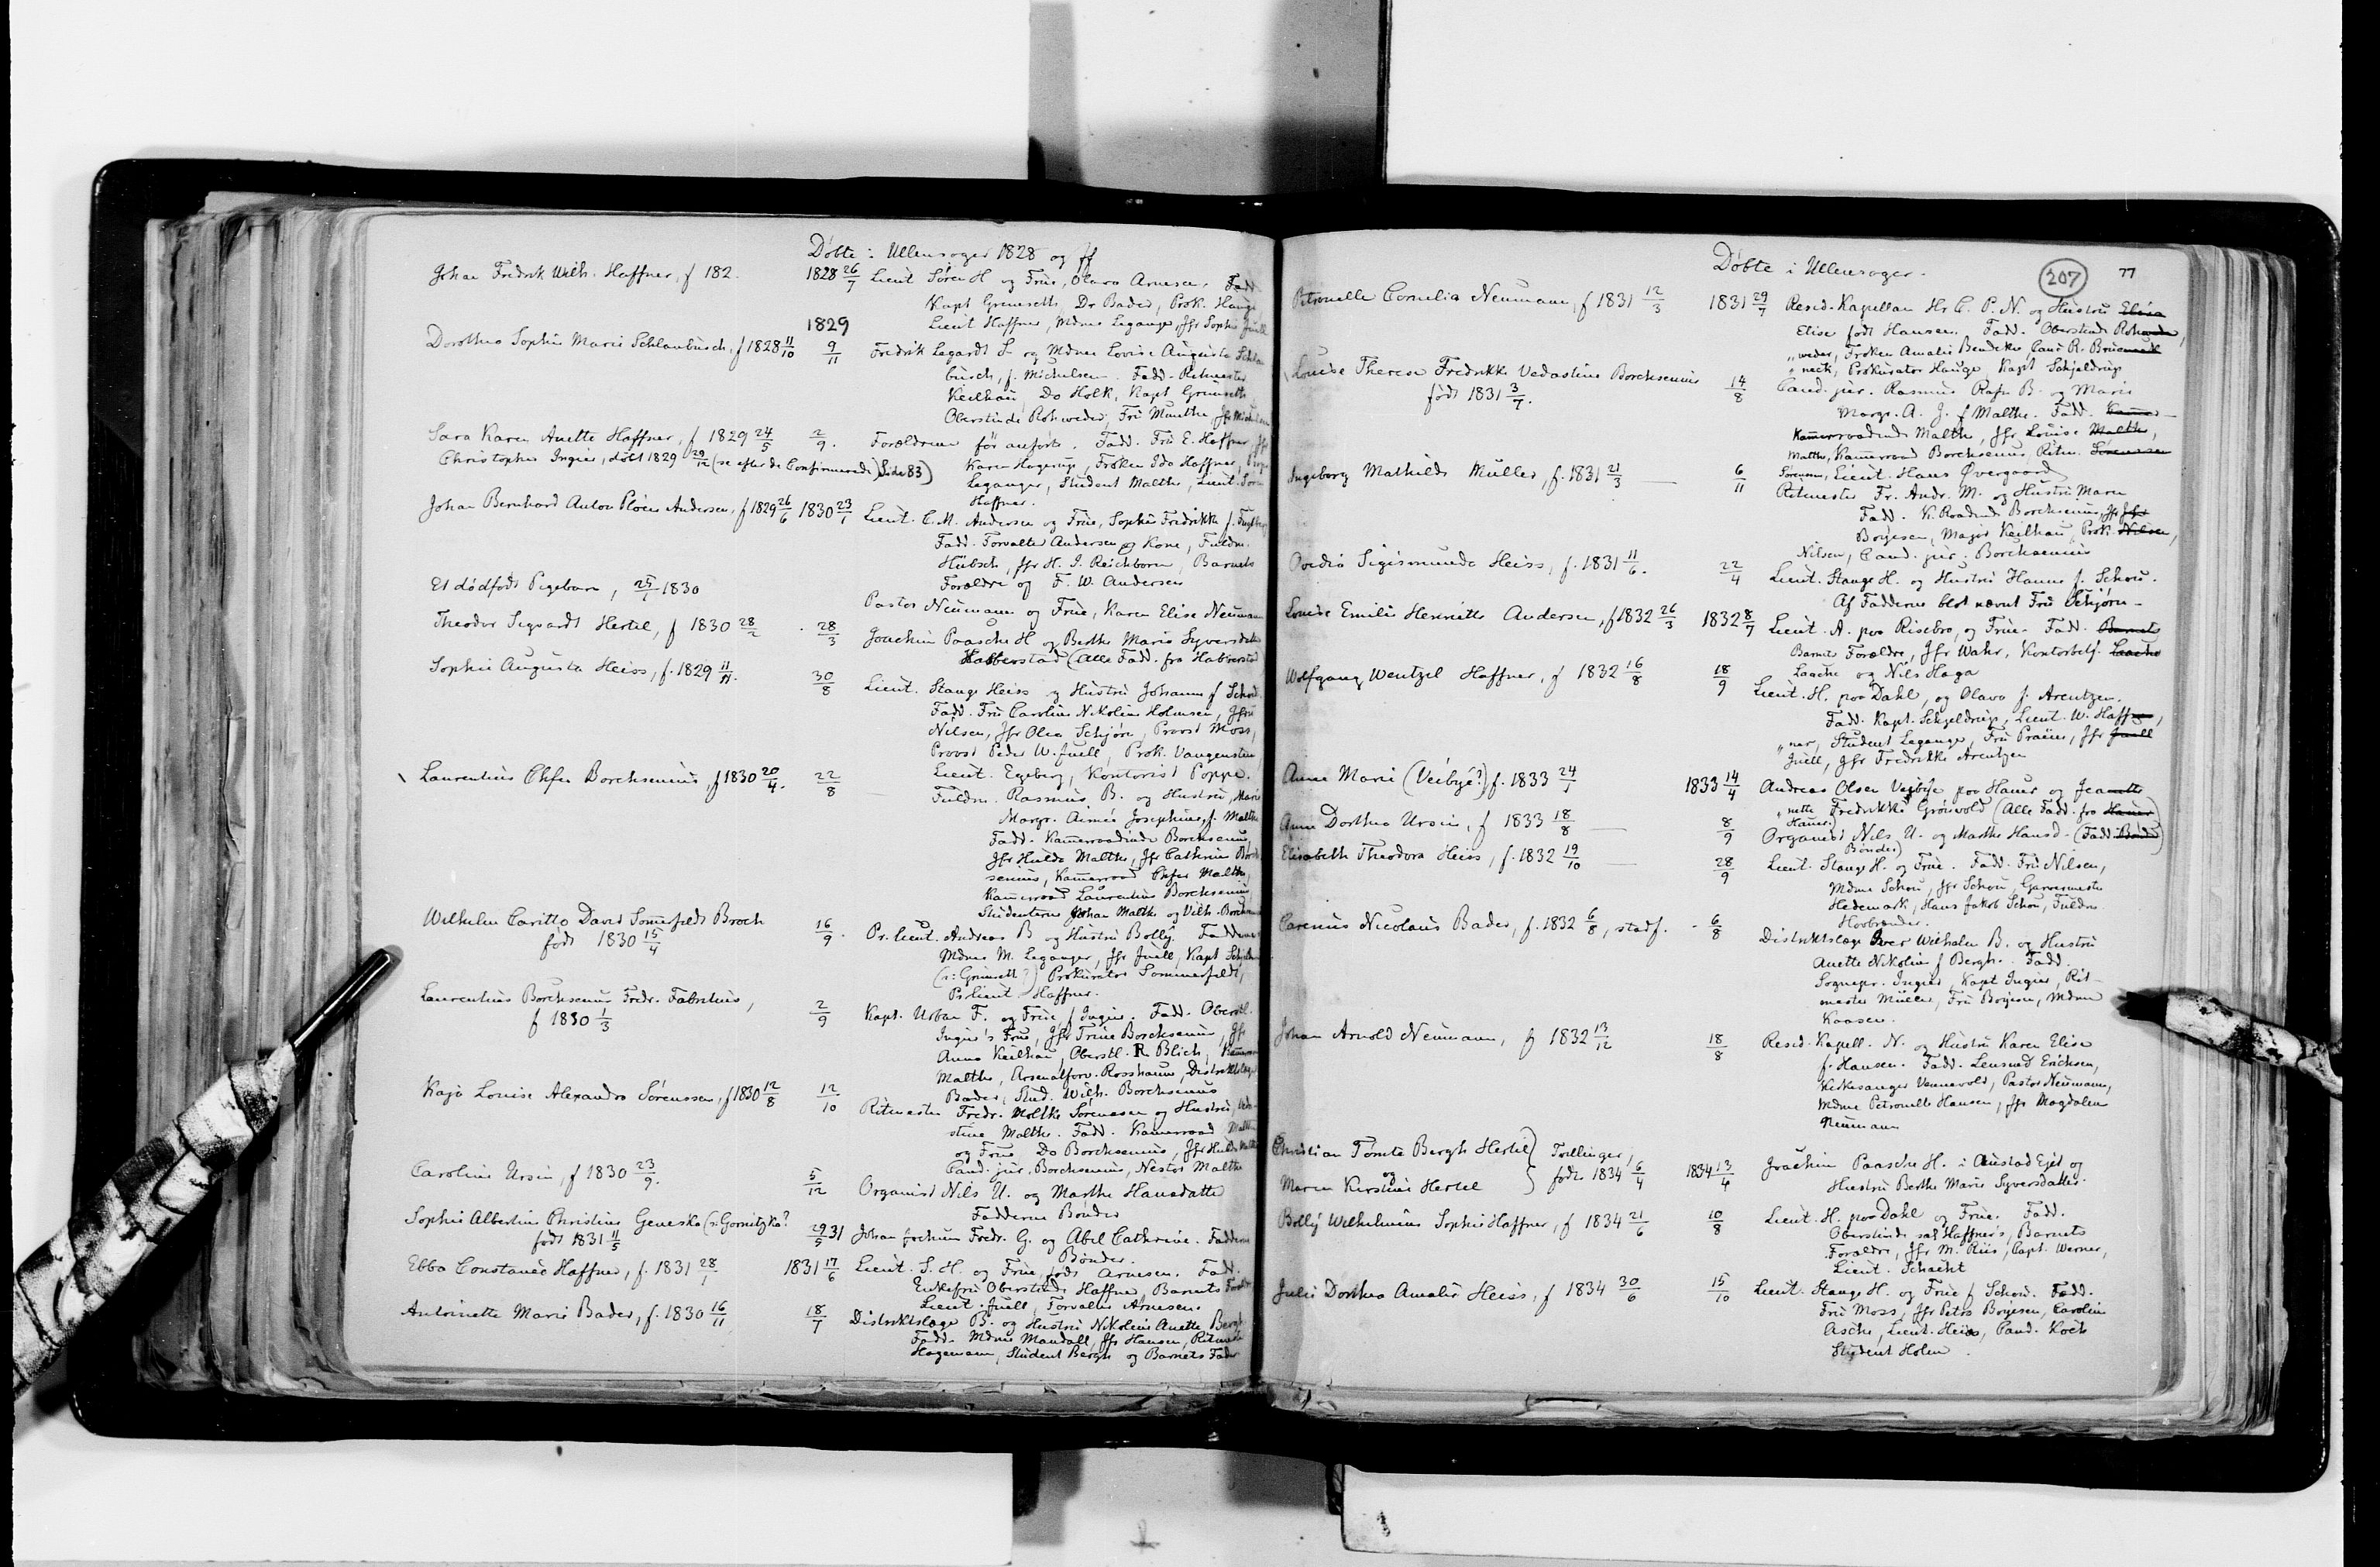 Døbte i Ullensager 1828 og ff
Johan Fredrik Wilh. Haffner, f 182. 1828 26/7 Lieut Søren H og Frue, Olava Arnesen. Fadd
Kapt Grimseth, Dr Bader, Prok. Hauge
1829 Lieut Haffner, Mdme Leganger, Jfr Sophie Juell
Dorothea Sophie Marie Schlanbusch, f 1828 11/10 9/11 Fredrik Legardt S- og Mdme Lovise Augusta Schlan
busch, f. Michelsen. Fadd. Ritmester
Keilhau, Do Holk, Kapt Grimseth
Oberstinde Rohweder, Fru Munthe, Jfr
Sara Karen Anette Haffner, f 1829 24/5 2/9. Forældrene før anført. Fadd. Fru E. Haffner, Jfr
Christopher Ingier, døbt 1829 29/12 (se efter de Confirmerede) Side 83) Karen Hagerup, Frøken Ida Haffner,
Leganger, Student Malthe, Lieut.
Haffner.
Johan Bernhard Anton Pløen Andersen, f 1829 26/6 1830 23/1 Lieut. C. M. Andersen og Frue, Sophie Fredrikke f.
Fadd. Forvalter Andersen og Kone, Fuldm.
Hübsch, Jfr H. J. Reichborn, Barnets
Forældre og F. W. Andersen
Et dødfødt Pigebarn, 25/1 1830
Pastor Neumann og Frue, Karen Elise Neumann
Theodor Sigvardt Hertel, f 1830 28/2 28/3 Joachim Paasche H og Berthe Marie Syversdatter
Habberstad (Alle Fadd. fra Habberstad
Sophie Augusta Heiss, f. 1829 11/11. 30/8 Lieut. Stange Heiss og Hustru Johanne f Schou.
Fadd. Fru Caroline Nikoline Holmsen, Jfru
Nilsen, Jfr Olea Schjørn, Provst Moss,
Provst Peder W. Juell, Prok. Vangensten
Lieut. Egeberg, Kontorist Poppe.
Laurentius Chfer Borchsenius, f 1830 20/4. 22/8 Fuldm. Rasmus B. og Hustru, Marie
Margr. Aimée Josephine, f. Malthe
Fadd. Kammerraadinde Borchsenius
Jfr Hulda Malthe, Jfr Cathrine Borch
senius, Kammerraad Chfer Malthe,
Kammerraad Laurentius Borchsenius
Studenterne Johan Malthe og Vilh. Borchsenius
Wilhelm Caritto David Somerfeldt Broch 16/9. Pr. lieut. Andreas B og Hustru Bolly. Faddere
født 1830 15/4 Mdme M. Leganger, Jfr Juell, Kapt
(ɔ: Grimseth?) Prokurator Sommerfeldt,
Pr lieut Haffner.
Laurentius Borchsenius Fredr. Fabritius, 2/9 Kapt. Urban F. og Frue, f Ingier. Fadd. Oberstl.
f 1830 1/3 Ingier's Frue, Jfr Trine Borchsenius, Jfr
Anna Keilhau, Oberstl. R Blich, Kammerraad
Malthe, Arsenalforv. Rosshaum, Distriktslæge
Bader, Stud. Wilh. Borchsenius
Kaja Louise Alexandra Sørenssen, f 1830 12/8 12/10 Ritmester Fredr. Moltke Sørenssen og Hustru, Veda-
stine Malthe. Fadd. Kammerraad Malthe
og Frue Do Borchsenius, Jfr Hulda Malthe
Cand. jur. Borchsenius, Nestor Malthe
Caroline Ursin, f 1830 23/9. 5/12 Organist Nils U. og Marthe Hansdatter
Fadderne Bønder
Sophie Albertine Christine Geneska (ɔ: Gornitzka? 29/5 31 Johan Jochum Fredr. G. og Abel Cathrine. Fadderne
født 1831 11/5 Bønder.
Ebba Constance Haffner, f. 1831 28/1 1831 17/6 Lieut. S. H. og Frue, født Arnesen. Fadd.
Enkefru Oberstinde Haffner, Barnets Forældre
Lieut. Juell, Forvalter Arnesen.
Antoinette Marie Bader, f. 1830 16/11 18/7 Distriktslæge B. og Hustru Nikoline Anette Bergh
Fadd. Mdme Mandall, Jfr Hansen, Ritmester
Hagemann, Student Bergh og Barnets Fader
Døbte i Ullensager. 207 77
Petronelle Cornelia Neumann, f 1831 12/3 1831 29/7 Resid. Kapellan Hr C. P. N. og Hustru Elisa
Elise født Hansen. Fadd. Oberstinde Rohwede,
„weder, Frøken Amalie Bendeke, Cand R. Bruenech
„nech, Prokurator Hauge, Kapt Schjeldrup
Louise Therese Fredrikke Vedastine Borchsenius 14/8 Cand. jur. Rasmus Rafn B. og Marie
født 1831 3/7. Margr. A. J. f Malthe. Fadd. Kammer-
Kammerraadinde Malthe, Jfr Louise Malthe,
Malthe, Kammerraad Borchsenius, Ritm. Sørenssen
Sørenssen, Lieut. Hans Øvergaard
Ingeborg Mathilde Müller, f. 1831 21/3 6/11 Ritmester Fr. Andr. M. og Hustru Maren
Fadd. K. Raadinde Borchsenius, Jfr Jfr
Boyesen, Major Keilhau, Prok. Nilsen,
Nilsen, Cand. jur. Borchsenius
Ovedia Sigismunda Heiss, f. 1831 11/6. 22/4 Lieut. Stange H. og Hustru Hanne f. Schou.
Af Fadderne blot nævnt Fru Schjørn-
Louise Emilie Henriette Andersen, f 1832 26/3 1832 8/7 Lieut. A. paa Risebro, og Frue. Fadd. Barnets
Barnets Forældre, Jfr Wahr, Kontorbetj. Laache
Laache og Nils Haga
Wolfgang Wentzel Haffner, f 1832 16/8 18/9 Lieut. H. paa Dahl, og Olava f. Arentzen.
Fadd. Kapt. Schjeldrup, Lieut. W. Haffne,
„ner, Student Leganger, Fru Praëm, Jfr Juell
Juell, Jfr Fredrikke Arentzen
Anne Marie (Veibye?) f. 1833 24/1 1833 14/4 Andreas Olsen Veibye paa Hauer og Jeanette
„nette Fredrikke Grønvold (Alle Fadd. fra Hauer
Hauer.)
Anne Dorthea Ursin, f 1833 18/8 8/9 Organist Nils U. og Marthe Hansd. (Fadd. Bønder)
Bønder)
Elisabeth Theodora Heiss, f. 1832 19/10 28/9 Lieut. Stange H. og Frue. Fadd. Fru Nilsen,
Mdme Schou, Jfr Schou, Garvermester
Hedemark, Hans Jakob Schou, Fuldm.
Hovbrænder.
Carenius Nicolaus Bader, f. 1832 6/8, stadf. - 6/8 Distriktslæge Iver Wilhelm B. og Hustru
Anette Nikoline f Bergh. Fadd.
Sognepr. Ingier, Kapt Ingier, Rit-
mester Müller, Fru Boyesen, Mdme
Kaasen.
Johan Arnold Neumann, f 1832 13/12 18/8 Resid. Kapell. N. og Hustru Karen Elise
f. Hansen. Fadd. Lensmd Ericksen,
Kirkesanger Vennevold, Pastor Neumann,
Mdme Petronelle Hansen, Jfr Magdalene
Neumann
Christian Tømte Bergh Hertel) Tvillinger,
og } født 1834 6/4 1834 13/4 Joachim Paasche H. i Austad Ejet og
Maren Kirstine Hertel Hustru Berthe Marie Syversdatter.
Bolly Wilhelmine Sophie Haffner, f 1834 21/6 10/8 Lieut. H. paa Dahl og Frue. Fadd.
Oberstinde sal Haffner's, Barnets
Forældre, Jfr M. Riis, Capt. Werner,
Lieut. Schacht
Julie Dorthea Amalie Heiss, f 1834 30/6 15/10 Lieut. Stange H. og Frue f Schou. Fadd.
Fru Moss, Jfr Petra Boyesen, Caroline
Asche, Lieut. Heiss, Cand. Koch
Student Holm.